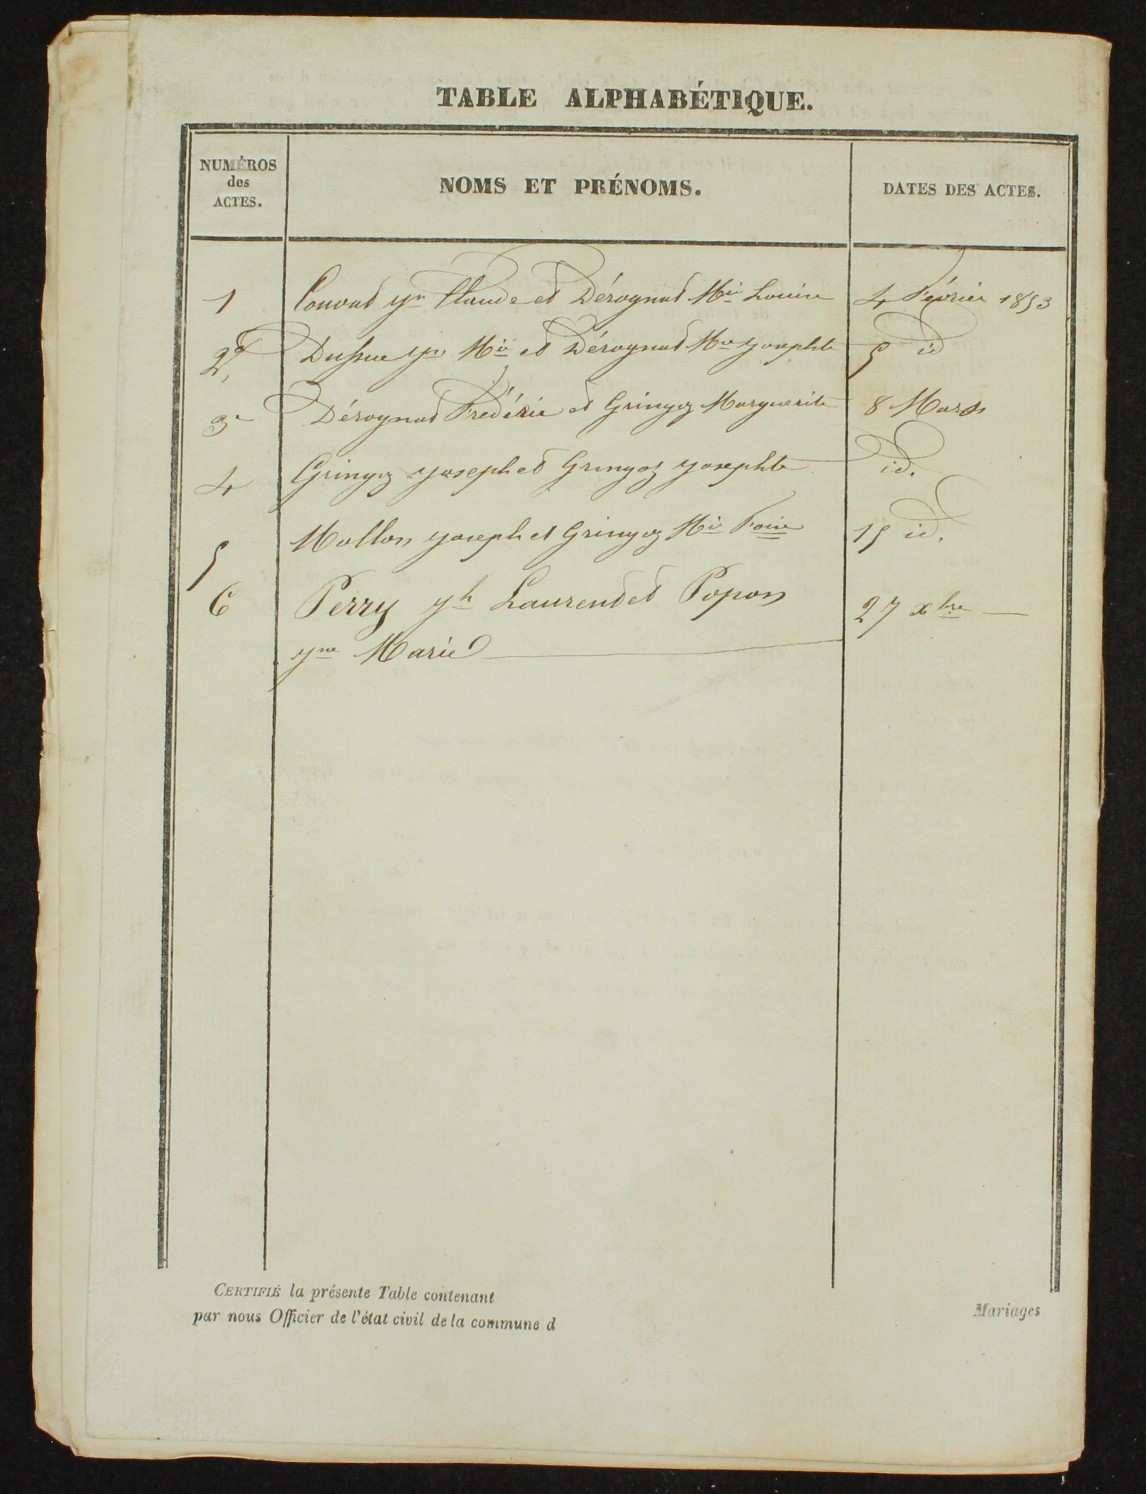 TABLE ALPHABÉTIQUE.
NUMÉROS des ACTES.
NOMS ET PRÉNOMS.
DATES DES ACTES.
1 Convat Jn Claude et Dérognat Mie Louise 4 Février 1853
2 Jn Mie et Dérognat Mie Josephte 5 id
3 Dérognat Frédéric et Gringoz Marguerite 8 Mars
4 Gringoz Joseph et Gringoz Josephte id.
5 Mollon Joseph et Gringoz Mie 15 id.
6 Perry Jh Laurent et Popon 27 xbre
Jne Marie
CERTIFIÉ la présente Table contenant
Mariages
par nous Officier de l'état civil de la commune d